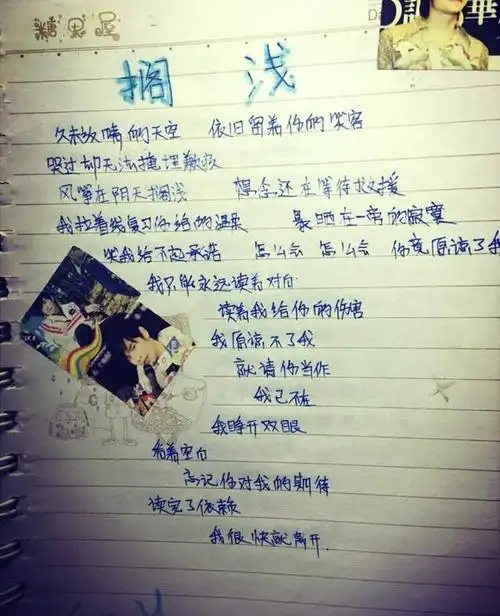 糖果屋
記 華
搁 浅
久未放晴的天空 依旧留着你的笑容
哭过却无法掩埋歉疚
风筝在阴天搁浅 想念还在等待救援
我拉着线复习你给的温柔 暴晒在一旁的寂寞
笑我给不起承诺 怎么会 怎么会 你竟原谅了我
我只能永远读着对白
读着我给你的伤害
我原谅不了我
就请你当作
我已不在
我睁开双眼
看着空白
忘记你对我的期待
读完了依赖
我很快就离开.